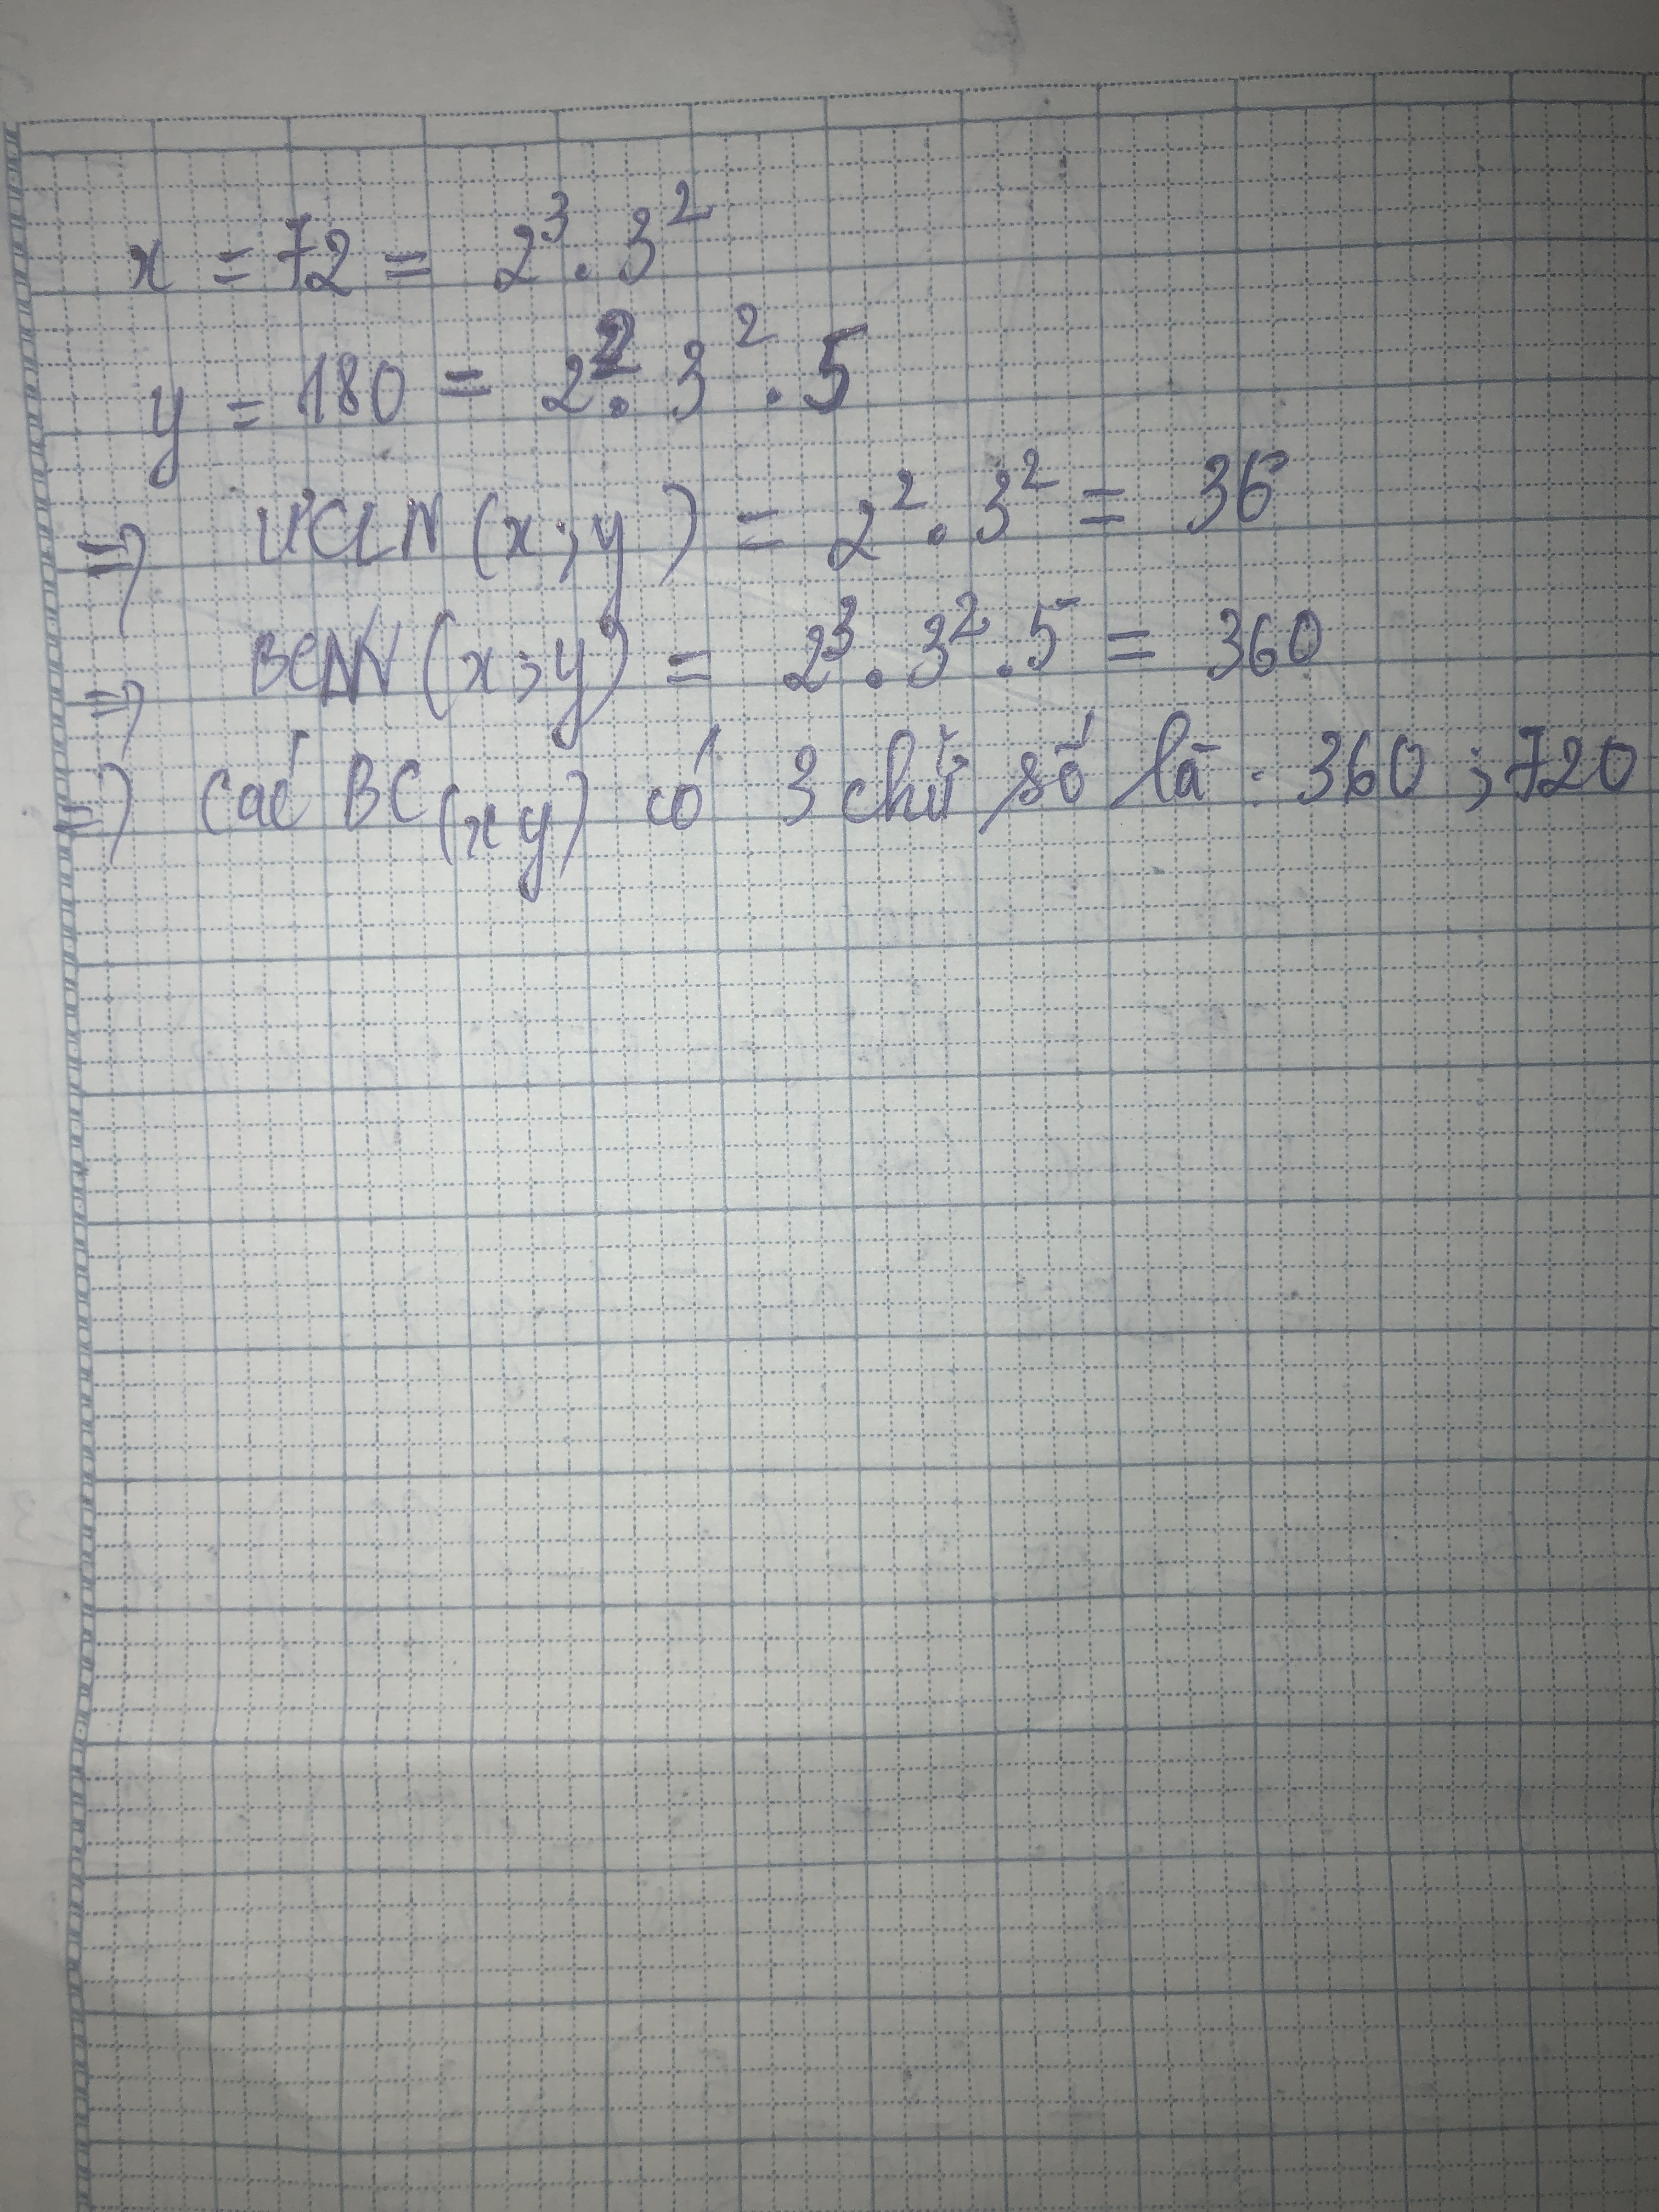 x = 72 = 2³ . 3²
y = 180 = 2² . 3² . 5
=> ƯCLN (x ; y) = 2² . 3² = 36
=> BCNN (x ; y) = 2³ . 3² . 5 = 360
=> Các BC (x y) có 3 chữ số là : 360 ; 720